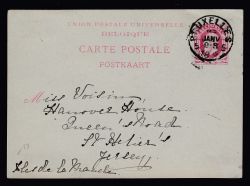 UNION POSTALE UNIVERSELLE
BELGIQUE
CARTE POSTALE
POSTKAART
BRUXELLES
JANV
Miss Voisin,
Hanover House,
Queen's Road
St Helier's
Jersey
Iles de la Manche